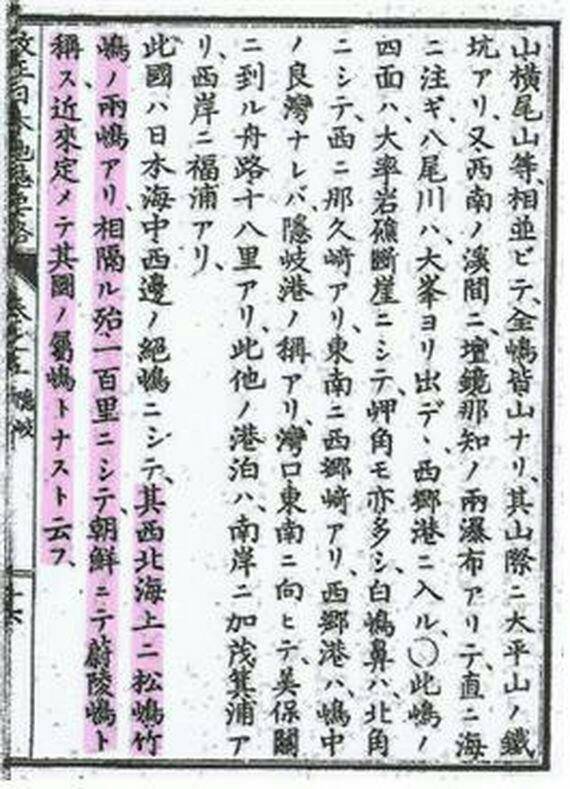 山橫尾山等、相並ビテ、全嶋皆山ナリ、其山際ニ大平山ノ鐵
坑アリ、又西南ノ溪間ニ、壇鏡那知ノ兩瀑布アリテ、直ニ海
ニ注ギ、八尾川ハ、大峯ヨリ出デ、西鄕港ニ入ル、〇此嶋ノ
四面ハ、大率岩礁斷崖ニシテ、岬角モ亦多シ、白嶋鼻ハ、北角
ニシテ、西ニ那久崎アリ、東南ニ西鄕崎アリ、西鄕港ハ、嶋中
ノ良灣ナレバ、隱岐港ノ稱アリ、灣口東南ニ向ヒテ、美保關
ニ到ル舟路十八里アリ、此他ノ港泊ハ、南岸ニ加茂箕浦ア
リ、西岸ニ福浦アリ、
此國ハ日本海中西邊ノ絕嶋ニシテ、其西北海上ニ松嶋竹
嶋ノ兩嶋アリ、相隔ル殆一百里ニシテ、朝鮮ニテ蔚陵嶋ト
稱ス、近來定メテ其國ノ屬嶋トナスト云フ、